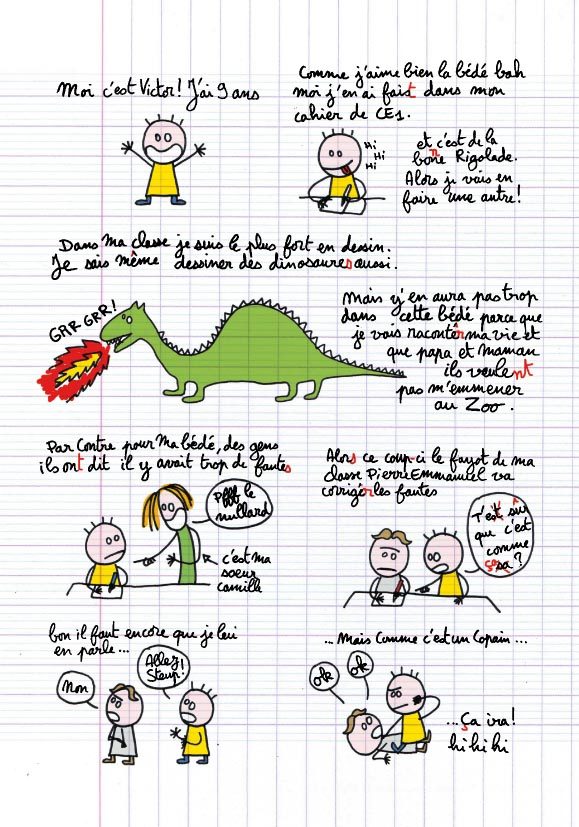 Moi c'est Victor! J'ai 9 ans
Comme j'aime bien la bédé bah
moi j'en ai fait dans mon
cahier de CE1.
Hi
Hi
Hi
et c'est de la
bonne Rigolade.
Alors je vais en
faire une autre!
Dans ma classe je suis le plus fort en dessin.
Je sais même dessiner des dinosaures aussi.
GRR GRR!
Mais y'en aura pas trop
dans cette bédé parce que
je vais raconter ma vie et
que papa et maman
ils veulent
pas m'emmener
au Zoo.
Par contre pour ma bédé, des gens
ils ont dit il y avait trop de fautes
Pffff le
nullard
c'est ma
soeur
camille
Alors ce coup-ci le fayot de ma
classe Pierre Emmanuel va
corriger les fautes
T'es sûr
que c'est
comme
ça?
bon il faut encore que je lui
en parle...
Non
Allez!
Steup!
... Mais comme c'est un Copain ...
ok
ok
...Ça ira!
hi hi hi